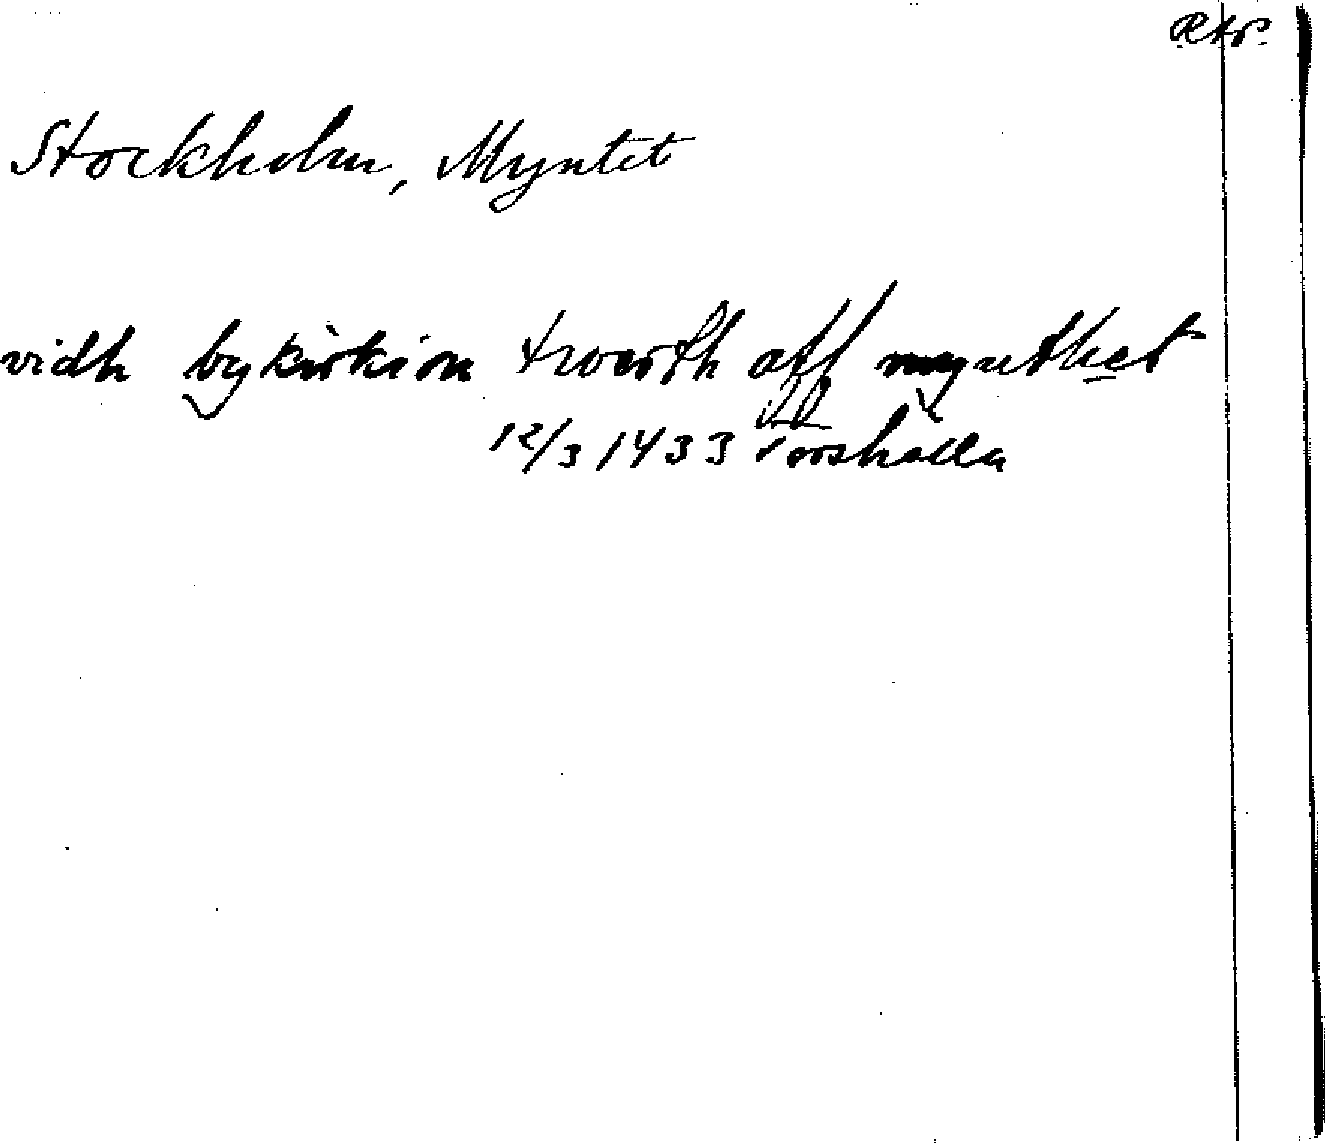 RAp.
Stockholm, Myntet
vidh bykirkion twerth aff mynthet
12/3 1433 Torshälla